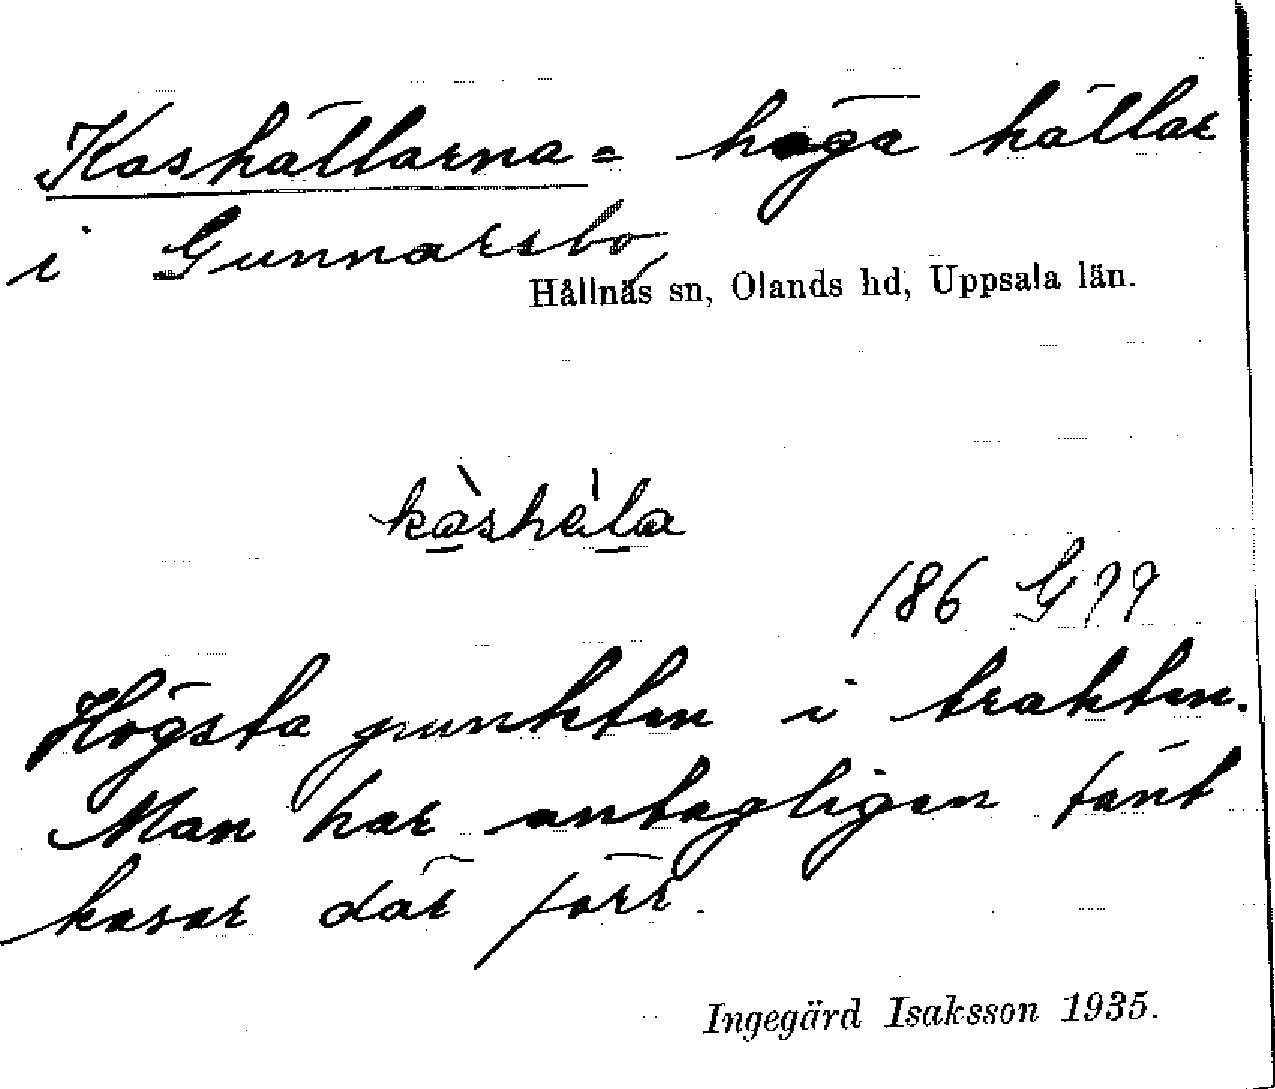 Kashällarna = höga hällar
i Gunnarsbo,
Hållnäs sn, Olands hd, Uppsala län.
kàshèla
186 G99
Högsta punkten i trakten.
Man har antagligen tänt
kasar där förr.
Ingegärd Isaksson 1935.